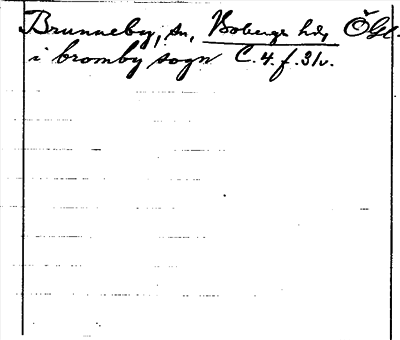 Brunneby, sn, Bobergs hd, Ögl.
i bromby sogn C.4. f. 31v.